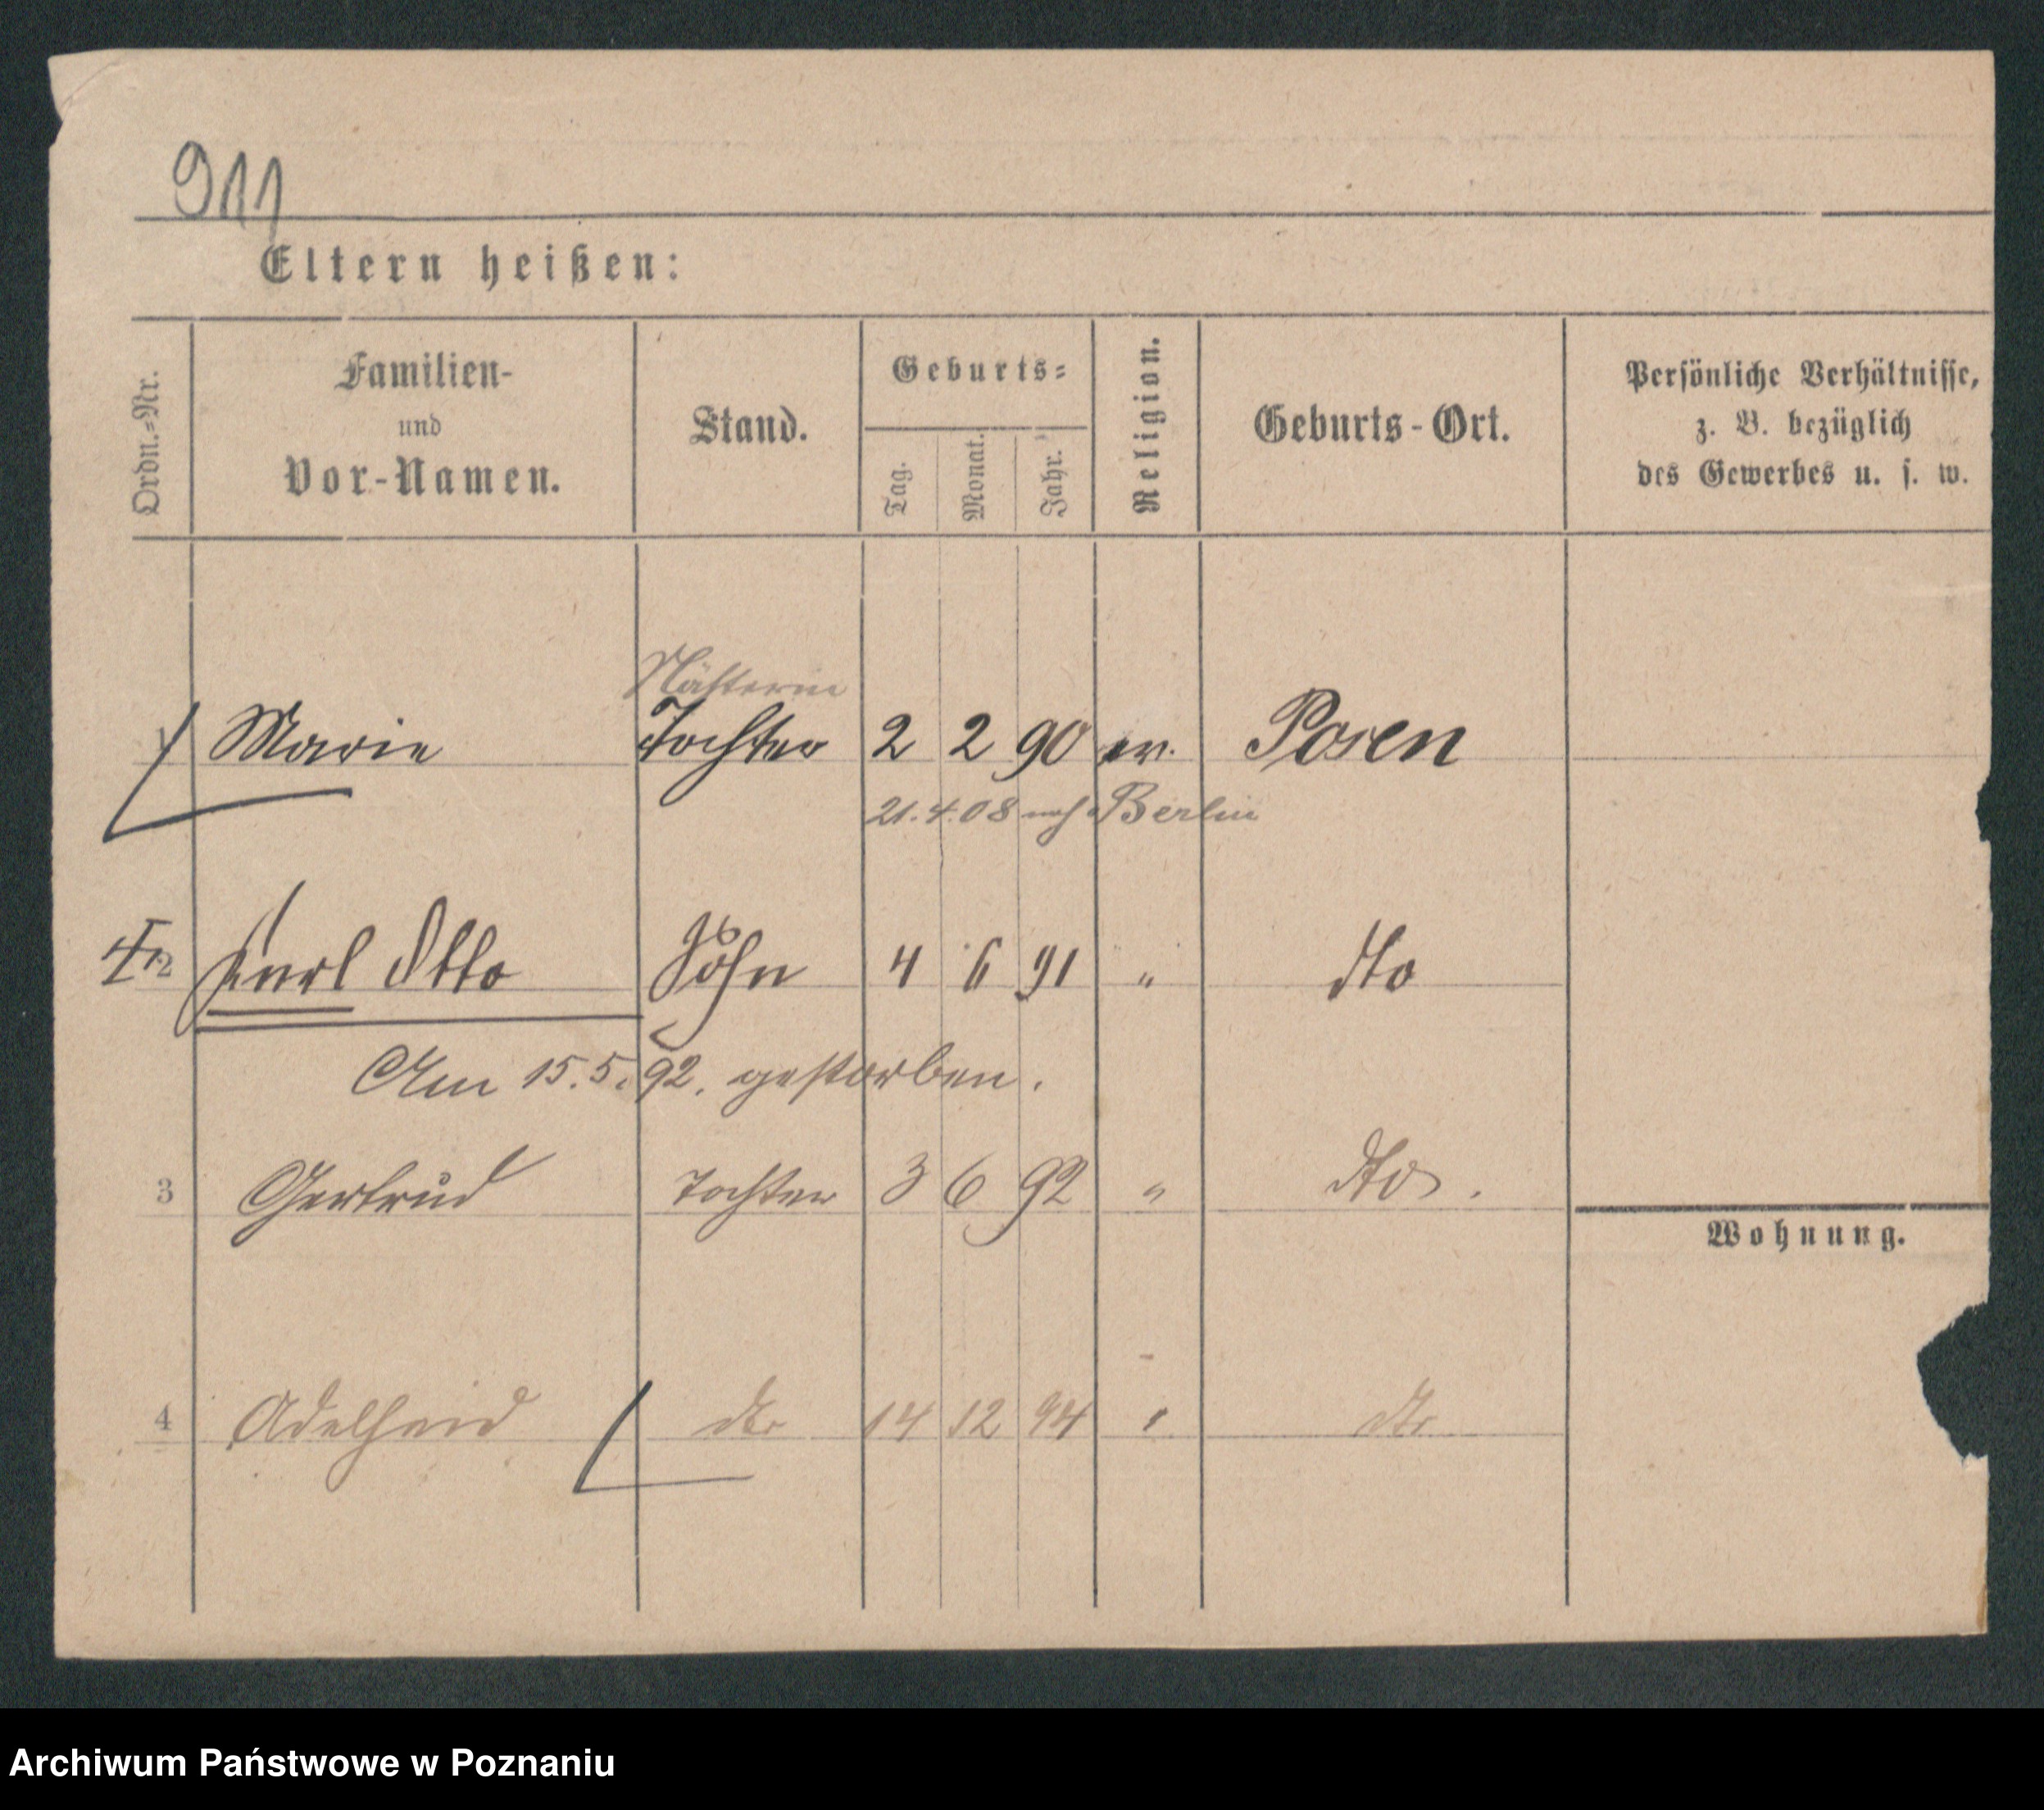 911
Eltern heißen:
Ordn.-Nr.
Familien-
und
Vor-Namen.
Stand.
Geburts-
Tag.
Monat.
Jahr.
Religion.
Geburts-Ort.
Persönliche Verhältnisse,
z. B. bezüglich
des Gewerbes u. s. w.
Nähterin
Marie Tochter 2 2 90 ev. Posen
21.4.08 nach Berlin
2 Karl Otto Sohn 4 6 91 " dto
Am 15.5.92. gestorben.
3 Gertrud Tochter 3 6 92 " dto.
Wohnung.
4 Adelheid dto 14 12 94 " dto
Archiwum Państwowe w Poznaniu